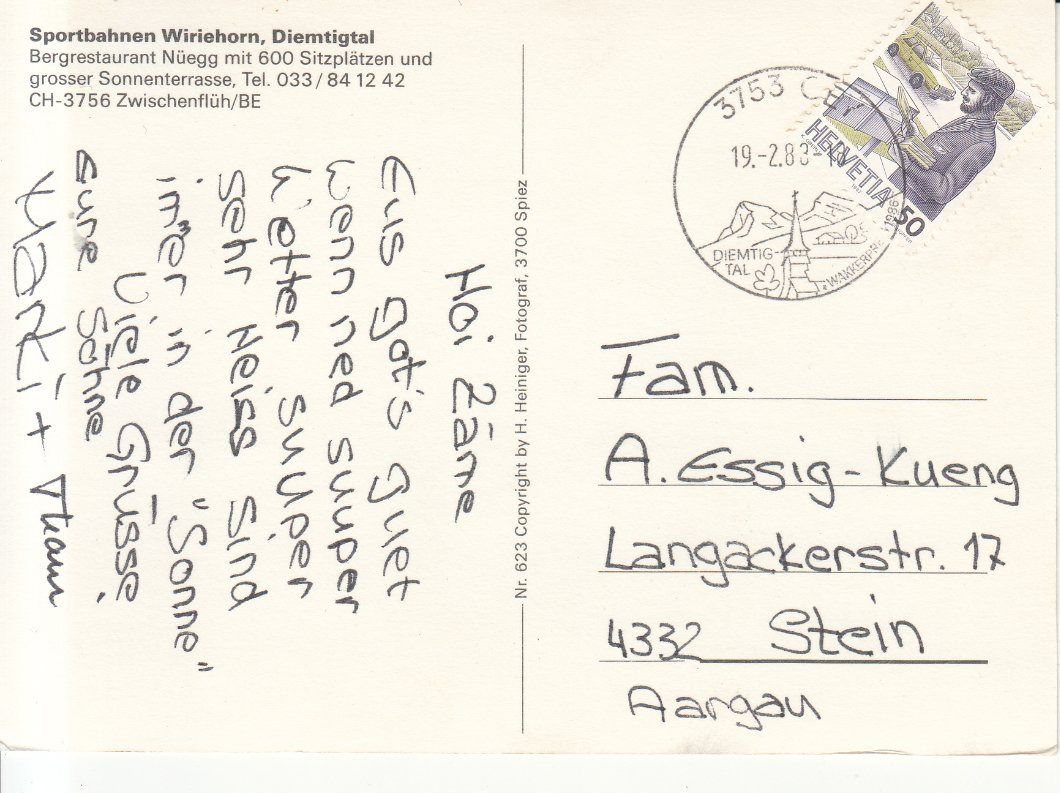 Sportbahnen Wiriehorn, Diemtigtal
Bergrestaurant Nüegg mit 600 Sitzplätzen und
grosser Sonnenterrasse, Tel. 033/84 12 42
CH-3756 Zwischenflüh/BE
Hoi Zäme
Eus got's guet
wenn ned suuper
Wetter super
sehr heiss sind
im̄er in der "Sonne"
Viele Grüsse
Eure Söhne
Nr. 623 Copyright by H. Heiniger, Fotograf, 3700 Spiez
3753 OEY
19.-2.88-
DIEMTIG-
TAL
WAKKERPREIS 1986
HELVETIA
50
Fam.
A. Essig-Kueng
Langackerstr. 17
4332 Stein
Aargau